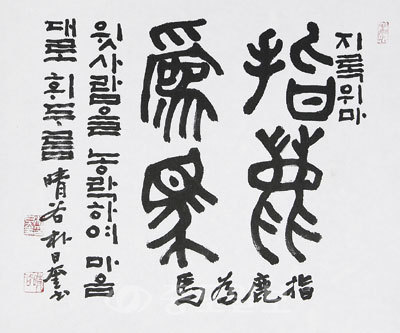 지록위마
指鹿
爲馬
指鹿為馬
윗사람을 농락하여 마음
대로 휘두름 晴谷 朴日奎